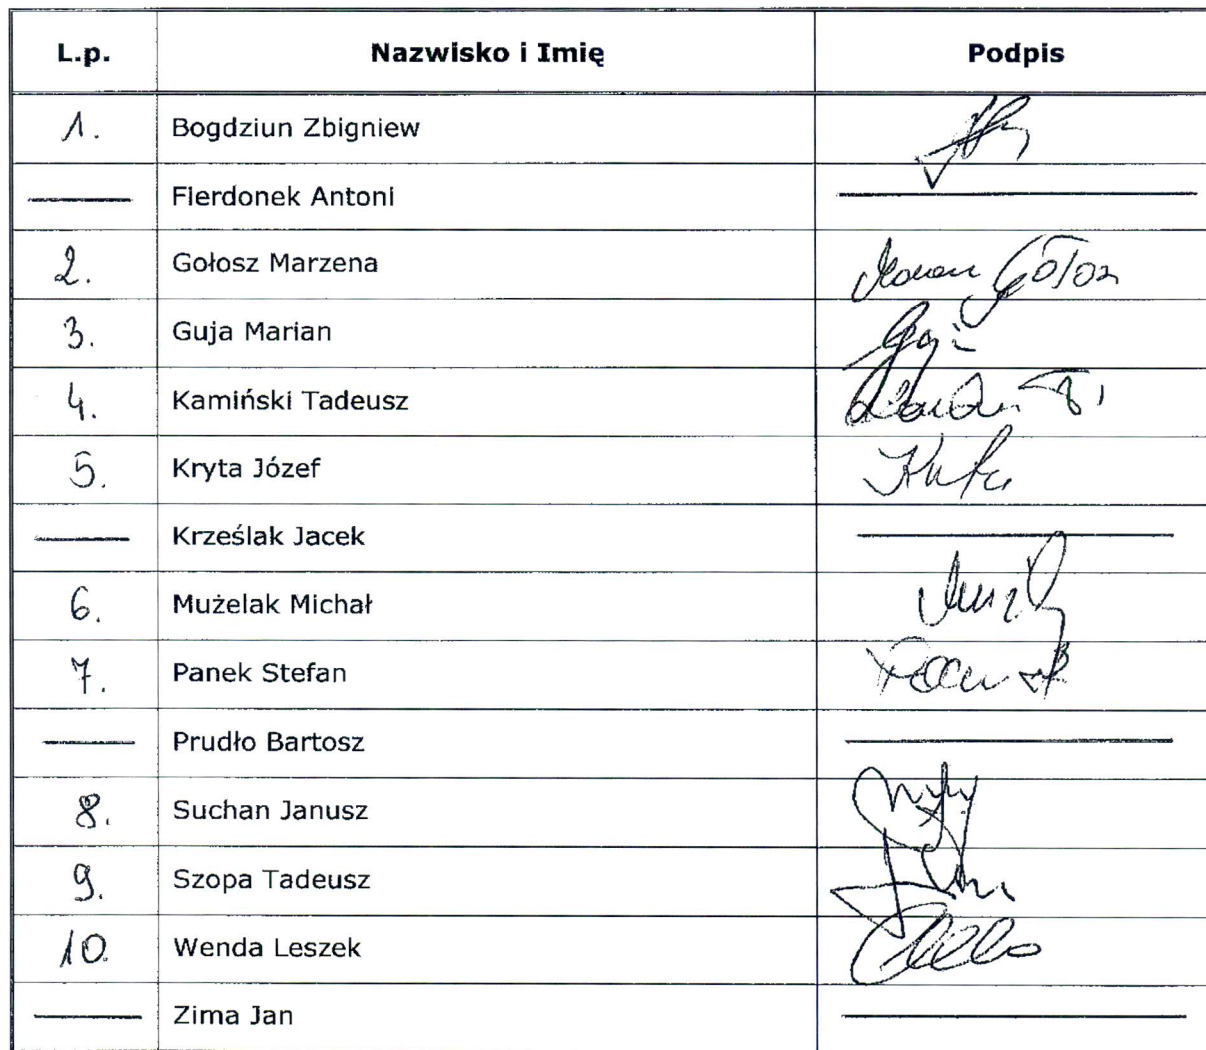 L.p. Nazwisko i Imię Podpis
1. Bogdziun Zbigniew
Fierdonek Antoni
2. Gołosz Marzena
3. Guja Marian
4. Kamiński Tadeusz
5. Kryta Józef
Krześlak Jacek
6. Mużelak Michał
7. Panek Stefan
Prudło Bartosz
8. Suchan Janusz
9. Szopa Tadeusz
10. Wenda Leszek
Zima Jan